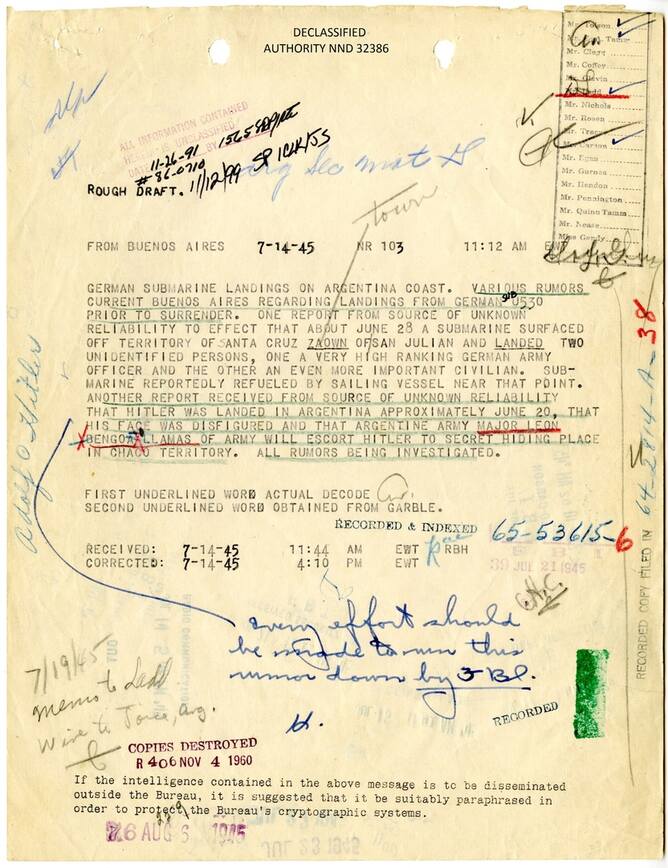 DECLASSIFIED
AUTHORITY NND 32386
Mr. Tolson
Mr. E. A. Tamm
Mr. Clegg
Mr. Coffey
Mr. Glavin
Mr. Ladd
Mr. Nichols
Mr. Rosen
Mr. Tracy
Mr. Carson
Mr. Egan
Mr. Gurnea
Mr. Hendon
Mr. Pennington
Mr. Quinn Tamm
Mr. Nease
Miss Gandy
ALL INFORMATION CONTAINED
HEREIN IS UNCLASSIFIED
DATE 11-26-91 BY
# 86-0710
11/12/99
ROUGH DRAFT.
town
FROM BUENOS AIRES 7-14-45 NR 103 11:12 AM EWT
GERMAN SUBMARINE LANDINGS ON ARGENTINA COAST. VARIOUS RUMORS
CURRENT BUENOS AIRES REGARDING LANDINGS FROM GERMAN SUB U530
PRIOR TO SURRENDER. ONE REPORT FROM SOURCE OF UNKNOWN
RELIABILITY TO EFFECT THAT ABOUT JUNE 28 A SUBMARINE SURFACED
OFF TERRITORY OF SANTA CRUZ ZAOWN OF SAN JULIAN AND LANDED TWO
UNIDENTIFIED PERSONS, ONE A VERY HIGH RANKING GERMAN ARMY
OFFICER AND THE OTHER AN EVEN MORE IMPORTANT CIVILIAN. SUB-
MARINE REPORTEDLY REFUELED BY SAILING VESSEL NEAR THAT POINT.
ANOTHER REPORT RECEIVED FROM SOURCE OF UNKNOWN RELIABILITY
THAT HITLER WAS LANDED IN ARGENTINA APPROXIMATELY JUNE 20, THAT
HIS FACE WAS DISFIGURED AND THAT ARGENTINE ARMY MAJOR LEON
BENGOA LLAMAS OF ARMY WILL ESCORT HITLER TO SECRET HIDING PLACE
IN CHACO TERRITORY. ALL RUMORS BEING INVESTIGATED.
FIRST UNDERLINED WORD ACTUAL DECODE
SECOND UNDERLINED WORD OBTAINED FROM GARBLE.
RECORDED & INDEXED 65-53615-6
F B I
39 JUL 21 1945
RECEIVED: 7-14-45 11:44 AM EWT RBH
CORRECTED: 7-14-45 4:10 PM EWT
Adolf Hitler
every effort should
be made to run this
rumor down by FBI.
H.
RECORDED
7/19/45
Memo to Ladd
Wire to
COPIES DESTROYED
R 406 NOV 4 1960
If the intelligence contained in the above message is to be disseminated
outside the Bureau, it is suggested that it be suitably paraphrased in
order to protect the Bureau's cryptographic systems.
289
76 AUG 6 1945
JUL 23 1945
RECORDED COPY FILED IN 64-2814-A-38